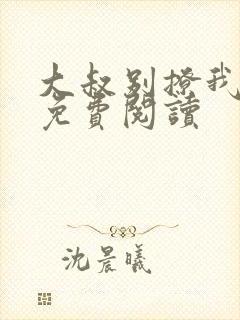 大叔别撩我
免費閱讀
沈晨曦